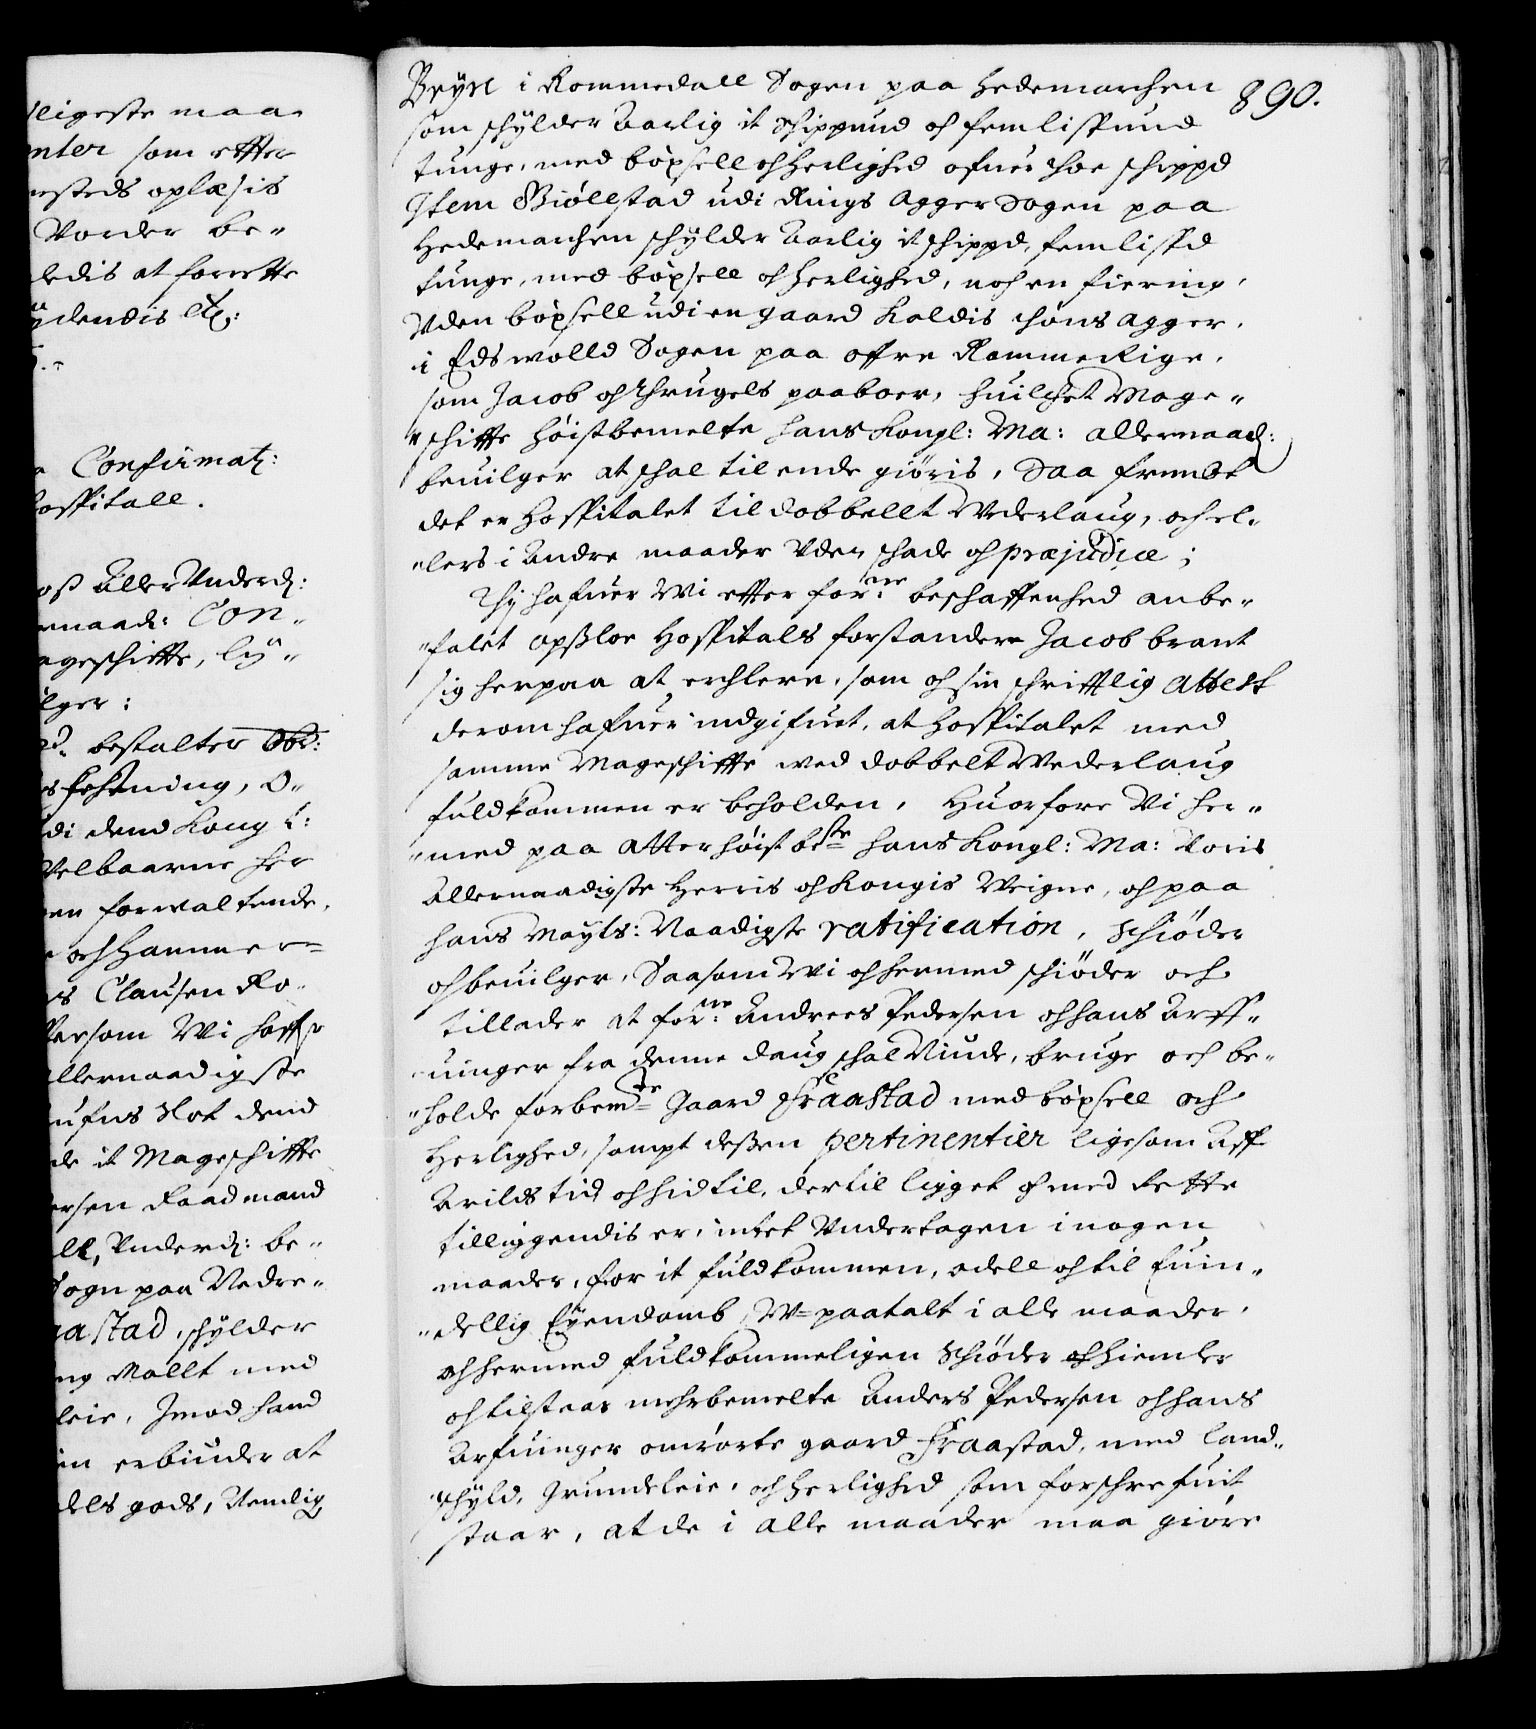 lligeste maa
nter som effter
nesteds oplæsis
Vorder be„
ledis at forrette
ydendis etc:
Confirmatz:
hospitall.
oss Aller Underd:
ernaad: Con„
ageschiffte, ly„
ilger:
bestalter Ob:
befehtning, O„
di dend Kong l:
Velbaarne Her
en forwaltende,
och Hammer=
s Clausen Ro„
ersom Wi haffr
llernaadigste
ufns Slot dend
de it Mageschiffte
ersen Raadmand
ll, Underd: be„
Sogn paa Nedre„
aastad, schylder
ng Mallt med
leie, Imod hand
in erbiuder at
dels gods, Nemlig
890.
Bryn i Rommedall Sogen paa Hedemarchen
som schylder Aarlig it Schippund och femlispund
tunge, med böxsell och herlighed ofuer thoe schippd
Item Biöllstad udi Rings Agger Sogen paa
Hedemarchen schylder Aarlig it schippd, femlispd
tunge, med böxsell och herlighed, noch en fiering,
Vden böxsell udi en gaard Kaldis Höns Agger,
i Edswolld Sogen paa offre Rommerige,
som Jacob och Thrugels paaboer, huilchet Mage„
„schiffte höistbemelte hans Kongl: Ma: allernaad:
beuilger at schal til ende giöris, Saa fremt
det er Hospitalet til dobbellt Wederlaug, och el„
„lers i Andre maader Uden schade och præjudice;
Thj hafuer Wi effter forne: beschaffenhed anbe„
„falet Opsloe Hospitals forstander Jacob brant
sig herpaa at erchlere, som och sin schrifftlig Attest
derom hafuer indgifuet, at Hospitalet med
samme Mageschiffte wed dobbelt Wederlaug
fuldkommen er beholden, Huorfore Wi her„
„med paa Atterhöistbete hans Kongl: Ma: Voris
Allernaadigste Herris och Kongis Weigne, och paa
hans Mayts: Naadigste ratification, schiöder
och beuilger, Saasom Wi och hermed schiöder och
tillader at forne: Andrees Pedersen och hans Arff„
„uinger fra denne daug schal Niude, bruge och be„
„holde forbemte Gaard Fraastad med böxsell och
Herlighed, sampt dessen pertinentier ligesom Aff
Arilds tid och hidtil, dertil ligget och med Rette
tilliggendis er, intet Undertagen i nogen
maader, for it fuldkommen, odell och til Euin„
„dellig Eyendomb W=paatalt i alle maader,
och hermed fuldkommeligen schiöder och hiemler
och tilstaar mehrbemelte Anders Pedersen och hans
Arfuinger omrörte gaard Fraastad, med Land„
„schyld, Grundeleie, och herlighed som forschrefuit
staar, at de i alle maader maa giöre